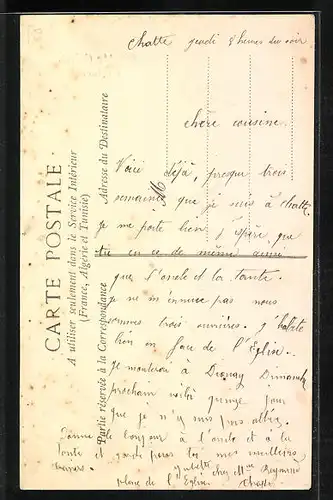 chatte jeudi 8 heures du soir
chère cousine.
Voici déjà, presque trois
semaine que je suis à chatte.
je me porte bien j'éspère que
tu en ce de même ainsi
que l'oncle et la tante.
je ne m'ennuie pas nous
sommes trois ouvrières. j'habite
bien en face de l'Eglise.
je monterai à Dionay Dimanche
prochain voilà quinze jours
que je n'y suis pas allée.
Donne le bonjour à l'oncle et à la
tante et garde pour toi mes meilleurs
baisers. Juliette chez Mme
place de l'Eglise Chatte
CARTE POSTALE
A utiliser seulement dans le Service Intérieur
(France, Algérie et Tunisie)
Partie réservée à la Correspondance
Adresse du Destinataire
M